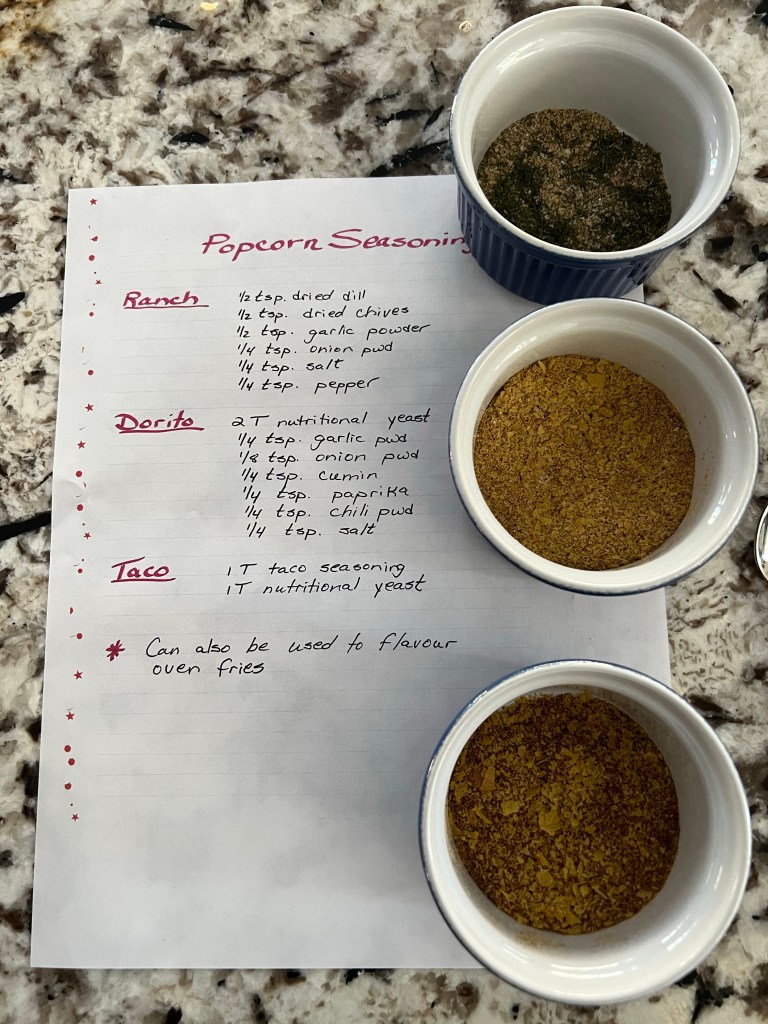 Popcorn Seasoning
Ranch ½ tsp. dried dill
½ tsp. dried chives
½ tsp. garlic powder
¼ tsp. onion pwd
¼ tsp. salt
¼ tsp. pepper
Dorito 2 T nutritional yeast
¼ tsp. garlic pwd
⅛ tsp. onion pwd
¼ tsp. cumin
¼ tsp. paprika
¼ tsp. chili pwd
¼ tsp. salt
Taco 1 T taco seasoning
1 T nutritional yeast
* Can also be used to flavour
oven fries